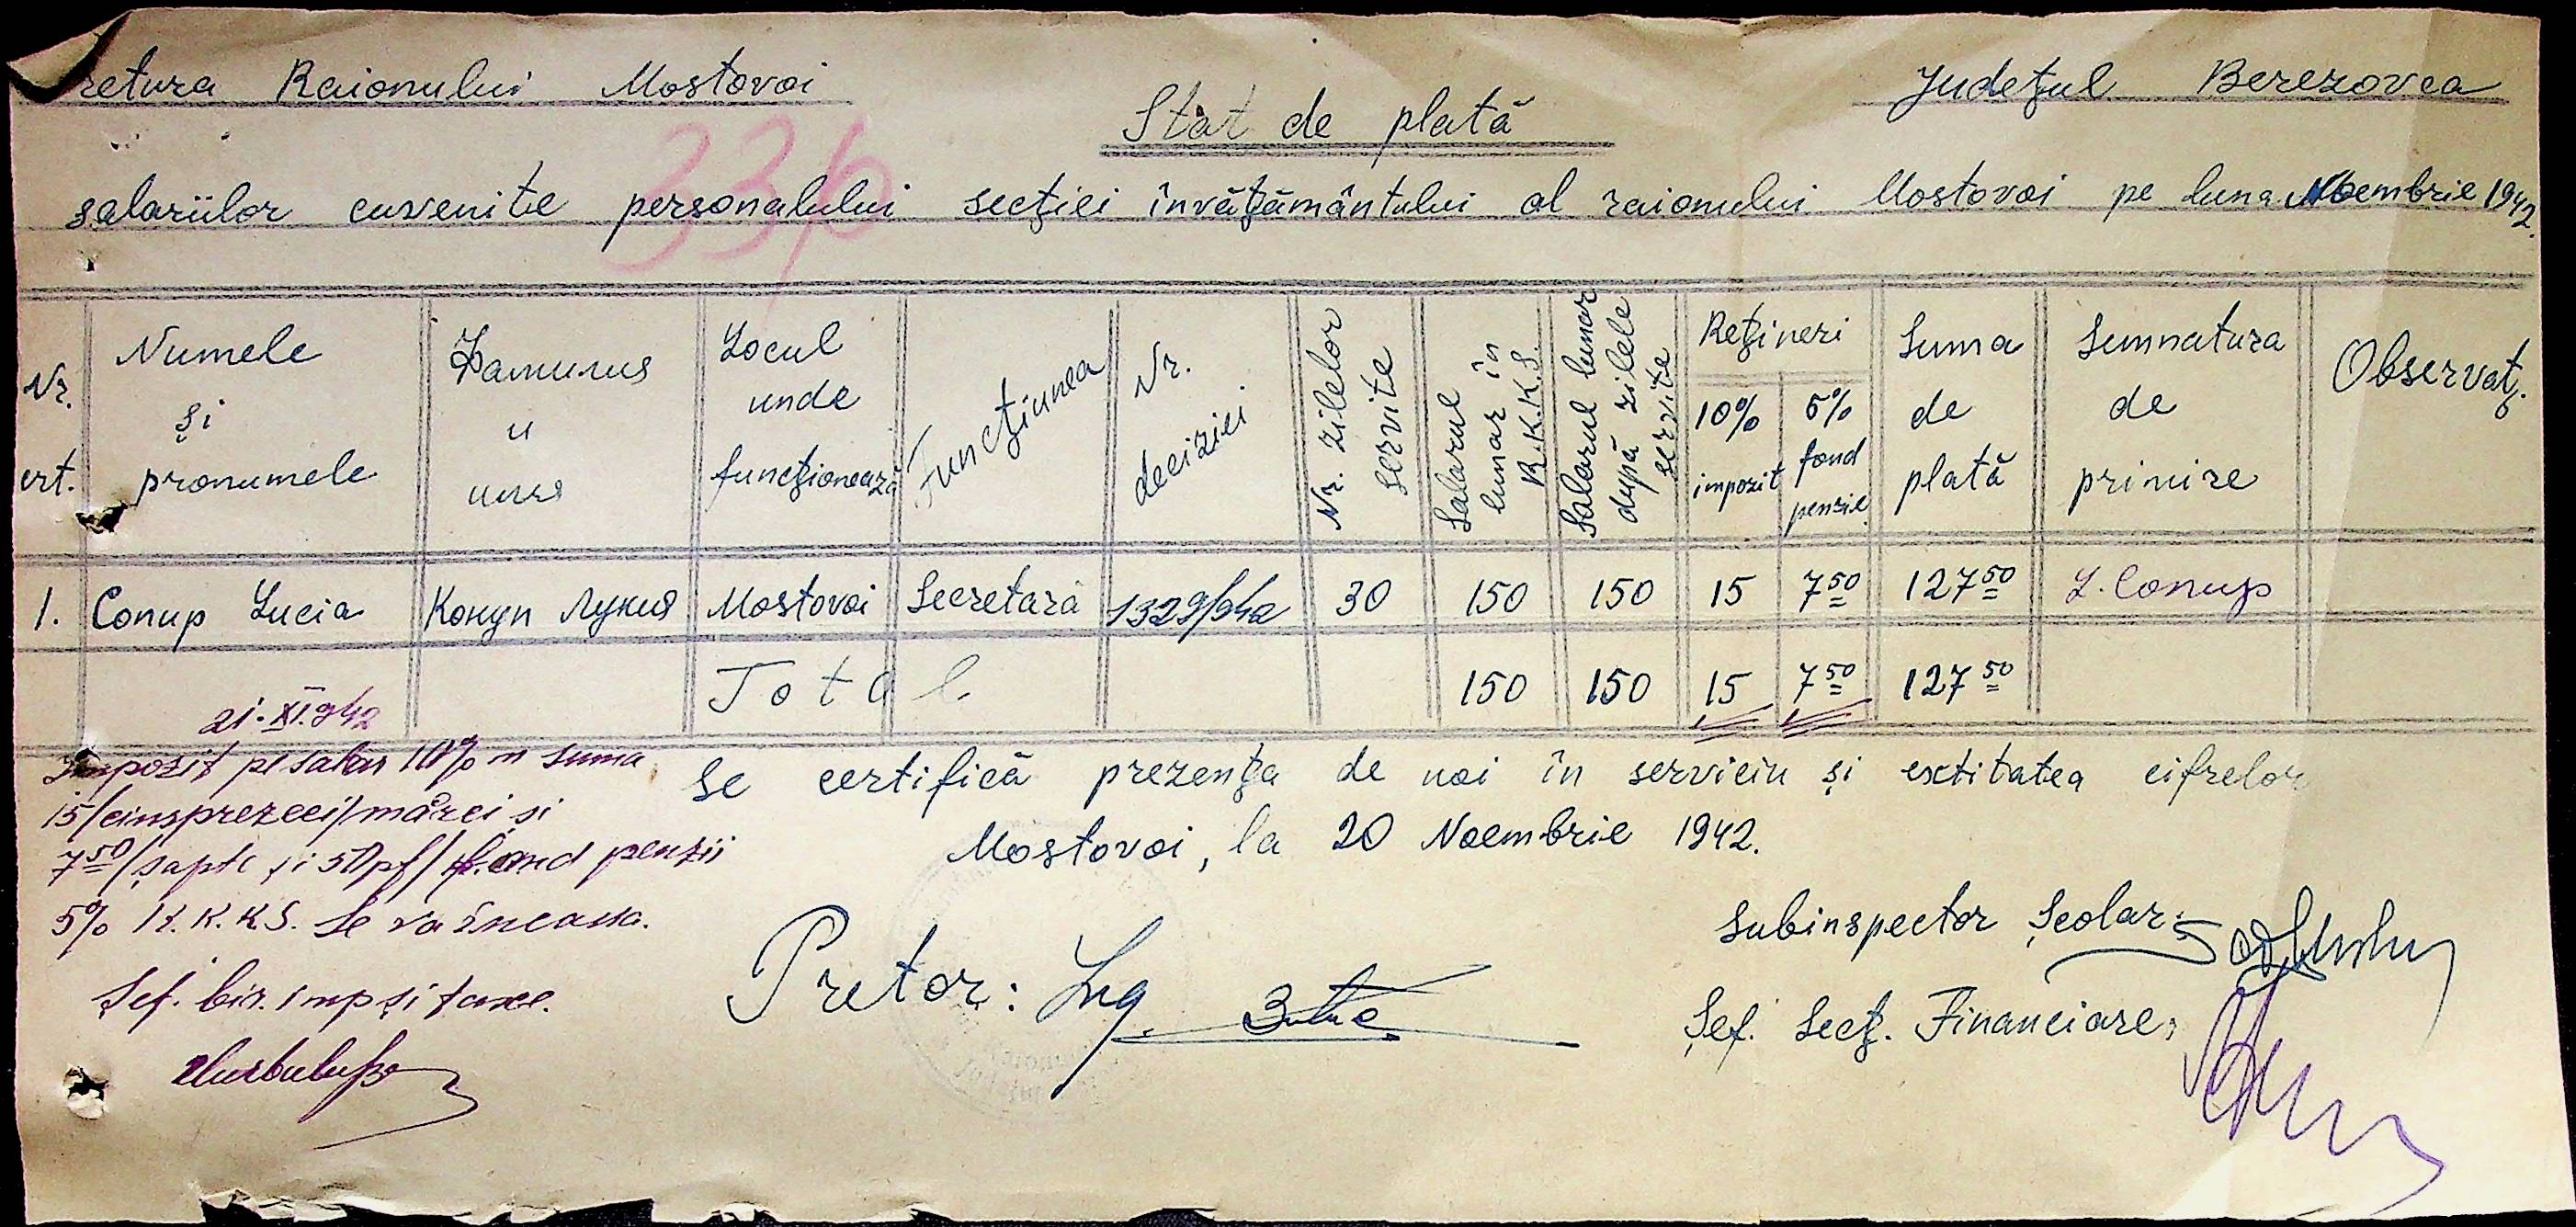 Pretura Raionului Mostovoi
Județul Berezovca
Stat de plată
336
salariilor cuvenite personalului secției învățământului al raionului Mostovoi pe luna Noembrie 1942.
Nr. crt.
Numele și pronumele
Фамилия и имя
Locul unde funcționează
Funcțiunea
Nr. deciziei
Nr. zilelor servite
Salarul lunar în R.K.K.S.
Salarul lunar după zilele servite
Rețineri
10% impozit
5% fond penzie
Suma de plată
Semnatura de primire
Observaț.
1. Conup Lucia Конуп Лукия Mostovoi Secretară 1329/942 30 150 150 15 7 50 127 50 L. Conup
Total. 150 150 15 7 50 127 50
21.XI.942
Impozit pe salar 10% în suma
15/cinsprezeci/mărci și
7 50/șapte și 50 pf/ fond penzii
5% R.K.K.S. se va încasa.
Șef. bir. imp și taxe.
Se certifică prezența de noi în serviciu și exctitatea cifrelor
Mostovoi, la 20 Noembrie 1942.
Pretor: Ing.
Subinspector Școlar:
Șef. Secț. Financiare: